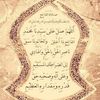 اللهم صل على سيدنا محمد
الفاتح لما أغلق والخاتم لما سبق
ناصر الحق بالحق والهادي
إلى صراطك المستقيم
وعلى آله وصحبه حق
قدره ومقداره العظيم